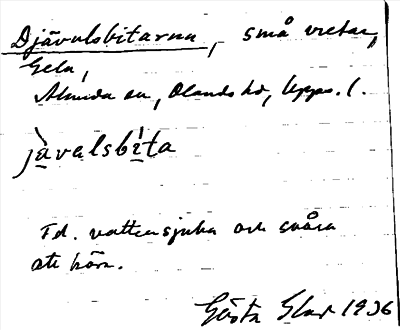 Djävulsbitarna, små vretar,
Gela,
Almunda sn, Olands hd, Upps. l.
jàvalsbíta
Fd. vattensjuka och svåra
att köra.
Gösta 1936